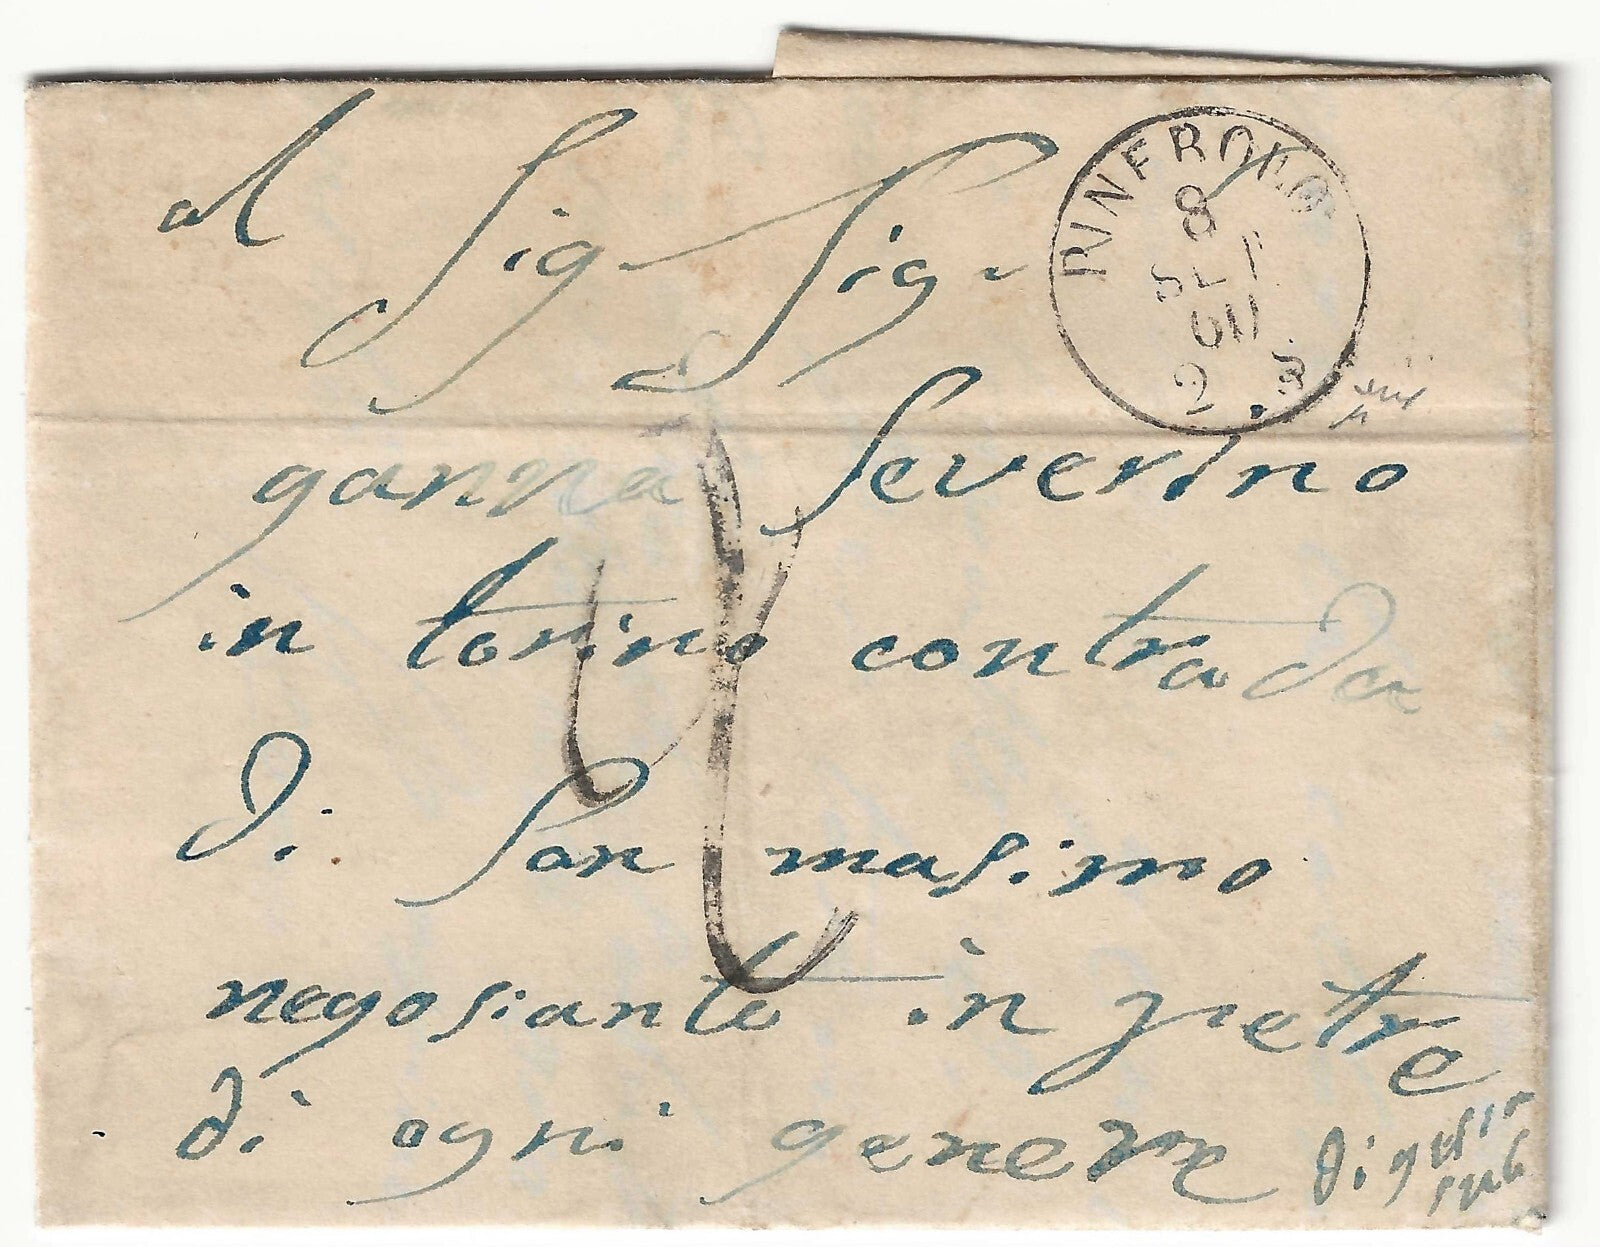 al Sig. Sig.
RINFRONLO
8
SET
60
2 . 3
ganna Severino
in torino contrada
di San masimo
negosiante in pietre
di ogni genere